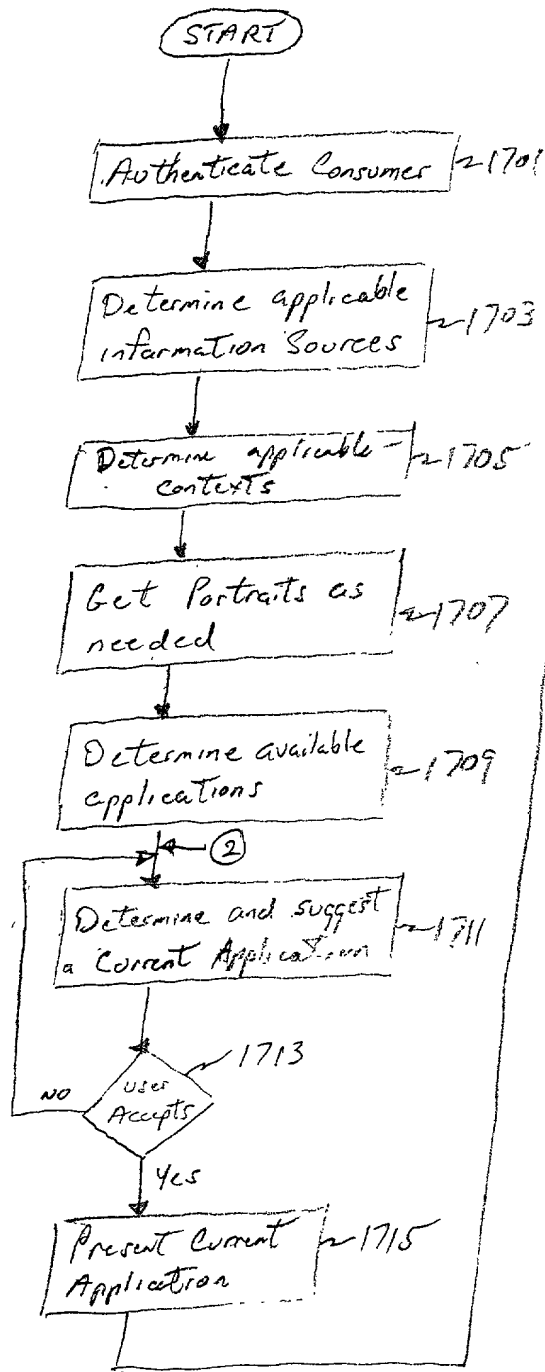 START
Authenticate Consumer 1701
Determine applicable 1703
information Sources
Determine applicable 1705
contexts
Get Portraits as 1707
needed
Determine available 1709
applications
2
Determine and suggest 1711
a Current Application
1713
User
Accepts
NO
Yes
Present Current 1715
Application